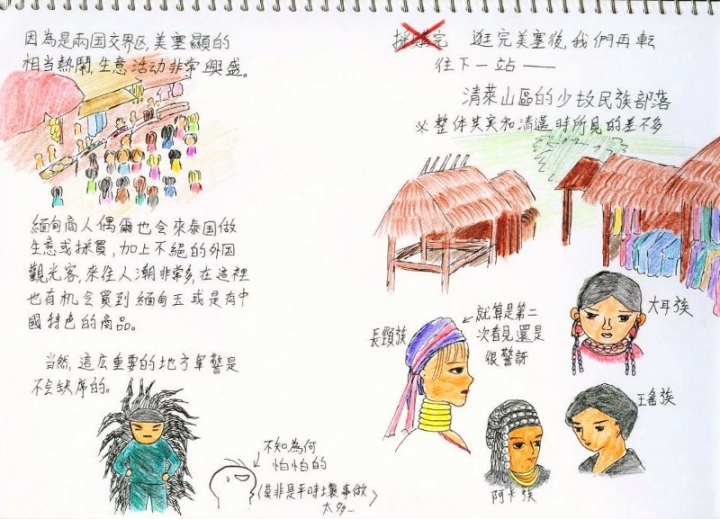 因為是兩国交界区,美塞顯的
相当熱鬧,生意活动非常興盛。
緬甸商人偶爾也会來泰国做
生意或採買,加上不絕的外国
觀光客,來往人潮非常多,在這裡
也有机会買到緬甸玉或是有中
國特色的商品。
当然,這広重要的地方軍警是
不会缺席的。
不知為何
怕怕的
(莫非是平時壞事做
太多…)
逛完美塞後,我們再転
往下一站——
清萊山區的少故民族部落
※整体其实和清邁時所見的差不多
長頸族
就算是第二
次看見還是
很警訝
大耳族
阿卡族
王瑤族